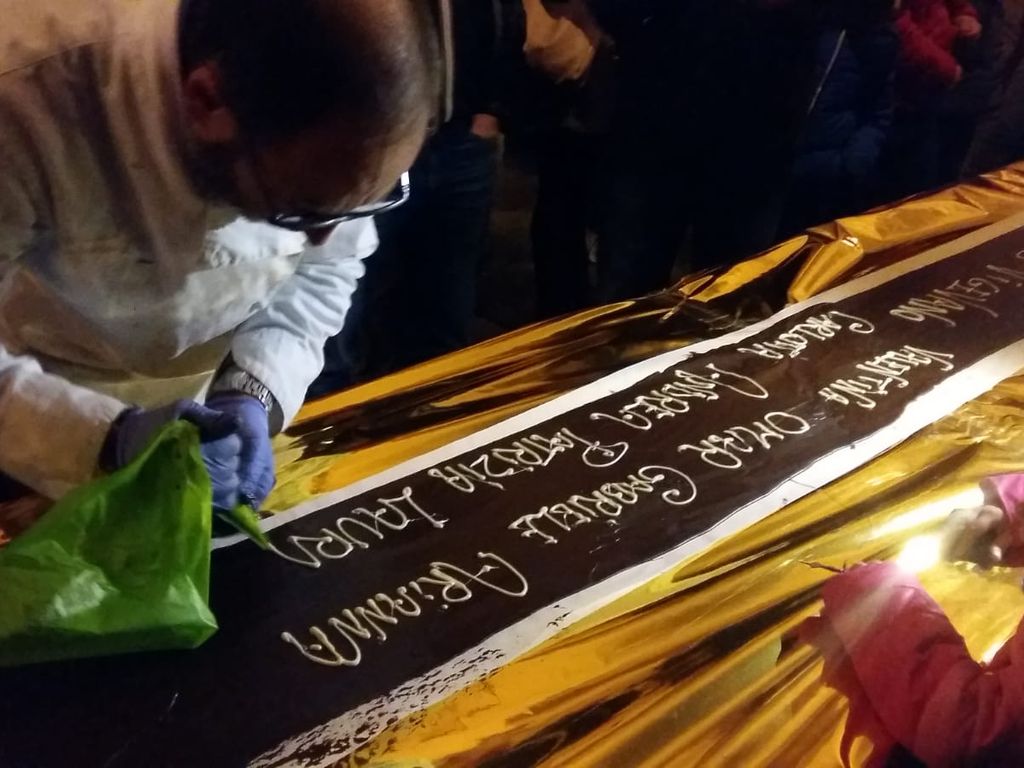 VIGEVANO
VALENTINA OMAR GABRIELE ARIANNA
CARLOTTA ANDREA PATRIZIA LAURA